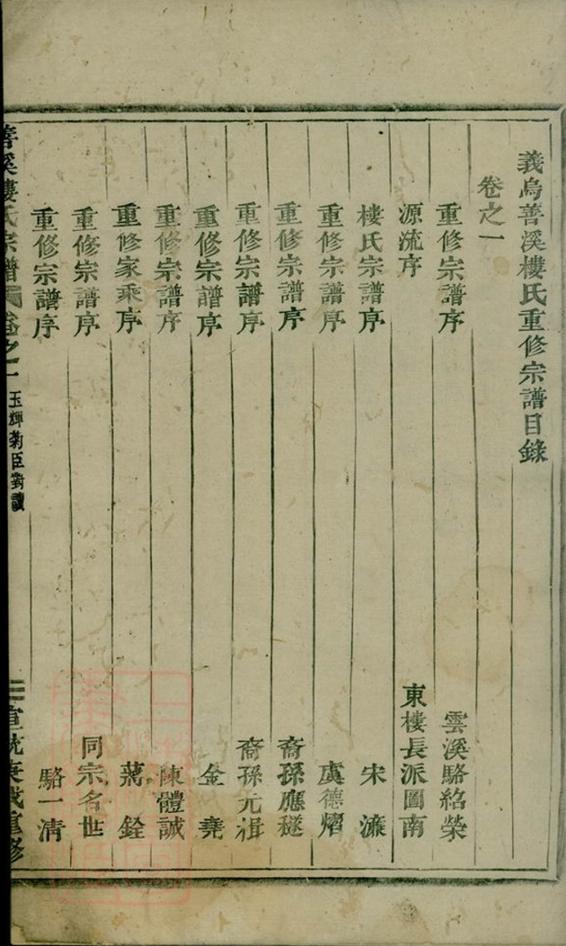 義烏善溪樓氏重修宗譜目錄
卷之一
重修宗譜序 雲溪駱紹榮
源流序 東樓長派圖南
樓氏宗譜序 宋濂
重修宗譜序 虞德熠
重修宗譜序 裔孫應
重修宗譜序 裔孫元楫
重修宗譜序 金堯
重修宗譜序 陳體誠
重修家乘序 蔣銓
重修宗譜序 同宗名世
重修宗譜序 駱一清
善溪樓氏宗譜 卷之一 玉輝菊臣對讀 宣統庚戌重修